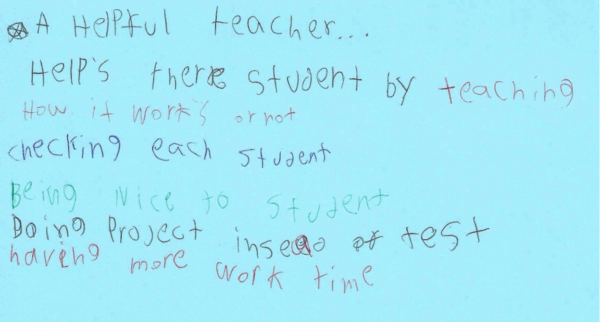 A HelPful teacher...
HelP's there student by teaching
How it work's or not
checking each student
Being Nice to student
Doing Project insead of test
having more work time